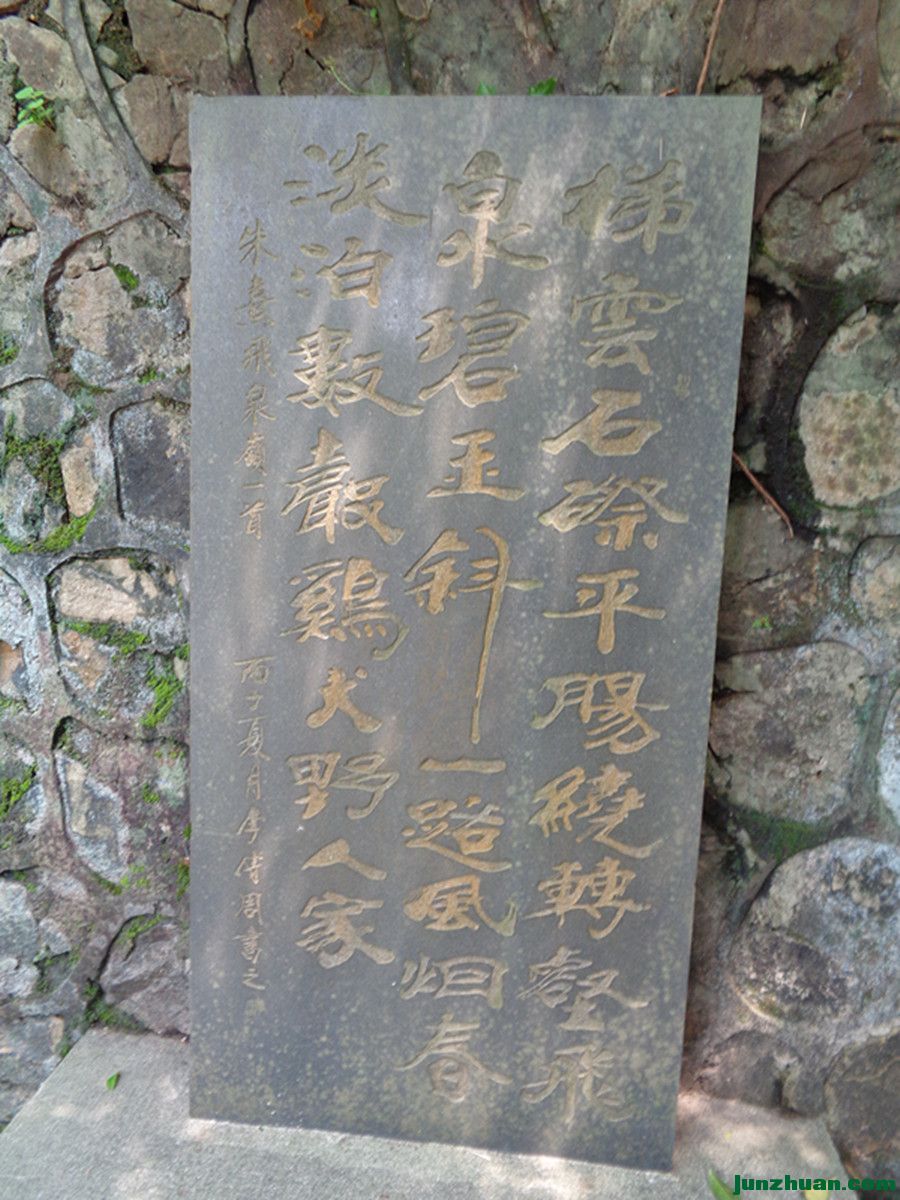 梯雲石磜平腸繞轉壑飛
泉碧玉斜一路風烟春
淡泊數聲鷄犬野人家
朱熹飛泉嶺一首 丙子夏月李周書之
junzhuan.com